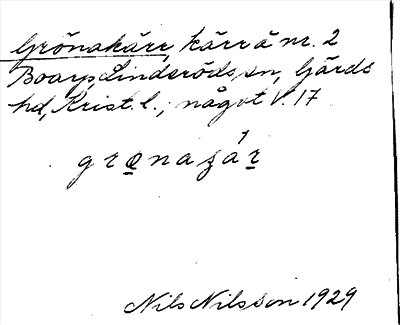 Grönakärr, kärr å nr. 2
Boarp, Linderöds sn, Gärds
hd, Krist. l., något V. 17
Nils Nilsson 1929